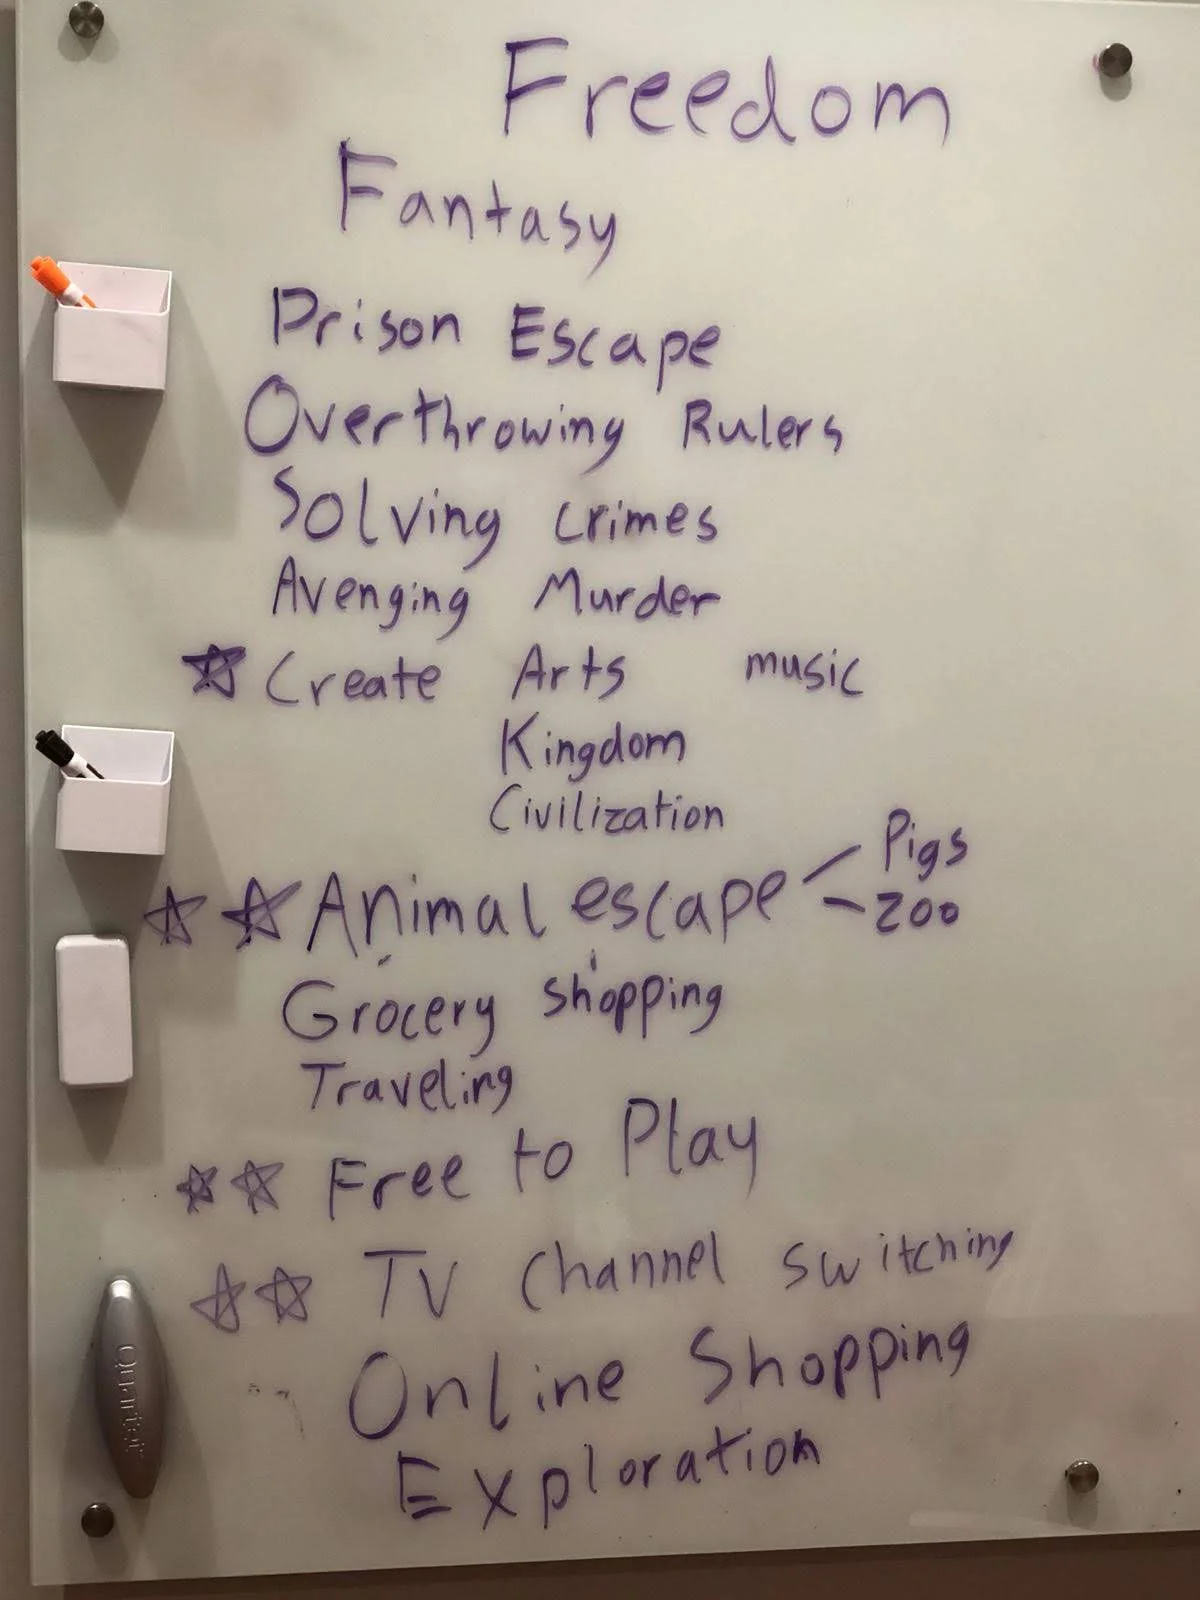 Freedom
Fantasy
Prison Escape
Overthrowing Rulers
Solving crimes
Avenging Murder
☆ Create Arts music
Kingdom
Civilization
☆ ☆ Animal escape Pigs
Zoo
Grocery shopping
Traveling
☆☆ Free to Play
☆☆ TV Channel switching
Online Shopping
Exploration
Quartet